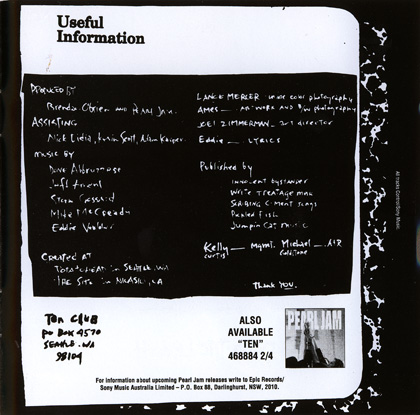 Useful
Information
PRODUCED BY
Brendan O'Brien AND PEARL JAM
ASSISTING
Nick DiDia, Kevin Scott, Adam Kasper
MUSIC BY
DAVE ABBRUZZESE
Jeff Ament
Stone Gossard
Mike McCready
Eddie Vedder
CREATED AT
POTATOHEAD in SEATTLE, WA
THE SITE in NICASIO, CA
LANCE MERCER inside color photography
AMES ART WORK AND B/W photography
JOEL ZIMMERMAN art director
Eddie LYRICS
Published by
INNOCENT bystander
WRITE TREATAGE MUSIC
SCRIBING C-MENT songs
Pickled Fish
Jumpin Cat MUSIC
Kelly Mgmt. Michael A+R
CURTIS Goldstone
THANK YOU.
Ten Club
PO BOX 4570
SEATTLE, WA
98104
ALSO
AVAILABLE
"TEN"
468884 2/4
PEARL JAM
For information about upcoming Pearl Jam releases write to Epic Records/
Sony Music Australia Limited – P.O. Box 88, Darlinghurst, NSW, 2010.
All tracks Control/Sony Music.